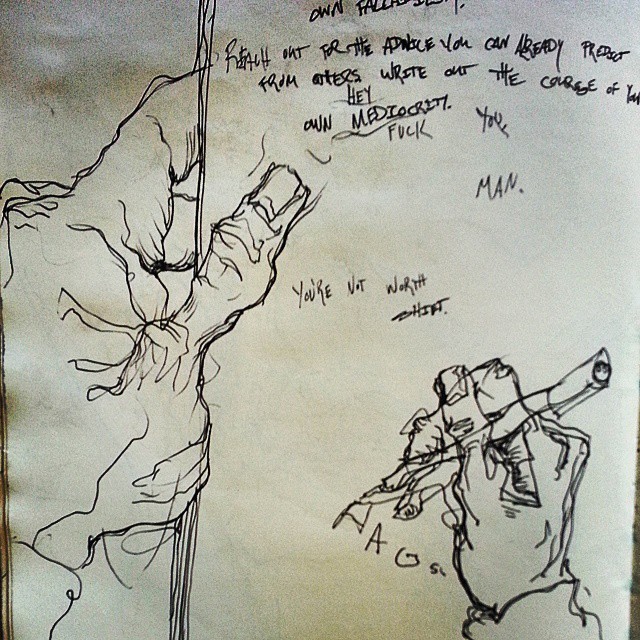 OWN FALLABILITY.
REACH OUT FOR THE ADVICE YOU CAN ALREADY PREDICT
FROM OTHERS WRITE OUT THE COURSE OF YOU
HEY
OWN MEDIOCRITY.
FUCK YOU,
MAN.
YOU'RE NOT WORTH
SHIT.